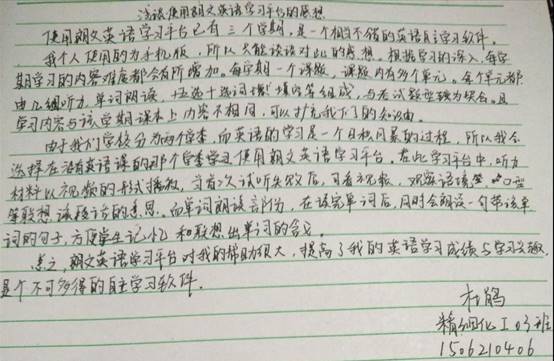 浅谈使用朗文英语学习平台的感想
使用朗文英语学习平台已有三个学期,是一个相当不错的英语自主学习软件。
我个人使用的为手机版,所以只能谈谈对此的感想。根据学习的深入,每学
期学习的内容难度都会有所增加。每学期一个课题,课题内有多个单元。每个单元都
由几组听力,单词朗读,五选十选词填空等组成,与考试题型较为契合。且
学习内容与该学期课本上内容不相同,可以扩充我们的知识面。
由于我们学校分为两个学季,而英语的学习是一个日积月累的过程,所以我会
选择在没有英语课的那个学季学习使用朗文英语学习平台。在此学习平台中,听力
材料以视频的形式播放,当首次试听失败后,可看视频,观察语境
等联想该段话的意思。而单词朗读部分,在读完单词后,同时会朗读一句带该单
词的句子,方便学生记忆和联想出单词的含义。
总之,朗文英语学习平台对我的帮助很大,提高了我的英语学习成绩与学习兴趣,
是个不可多得的自主学习软件。
杜鹃
精细化工03班
1506210406